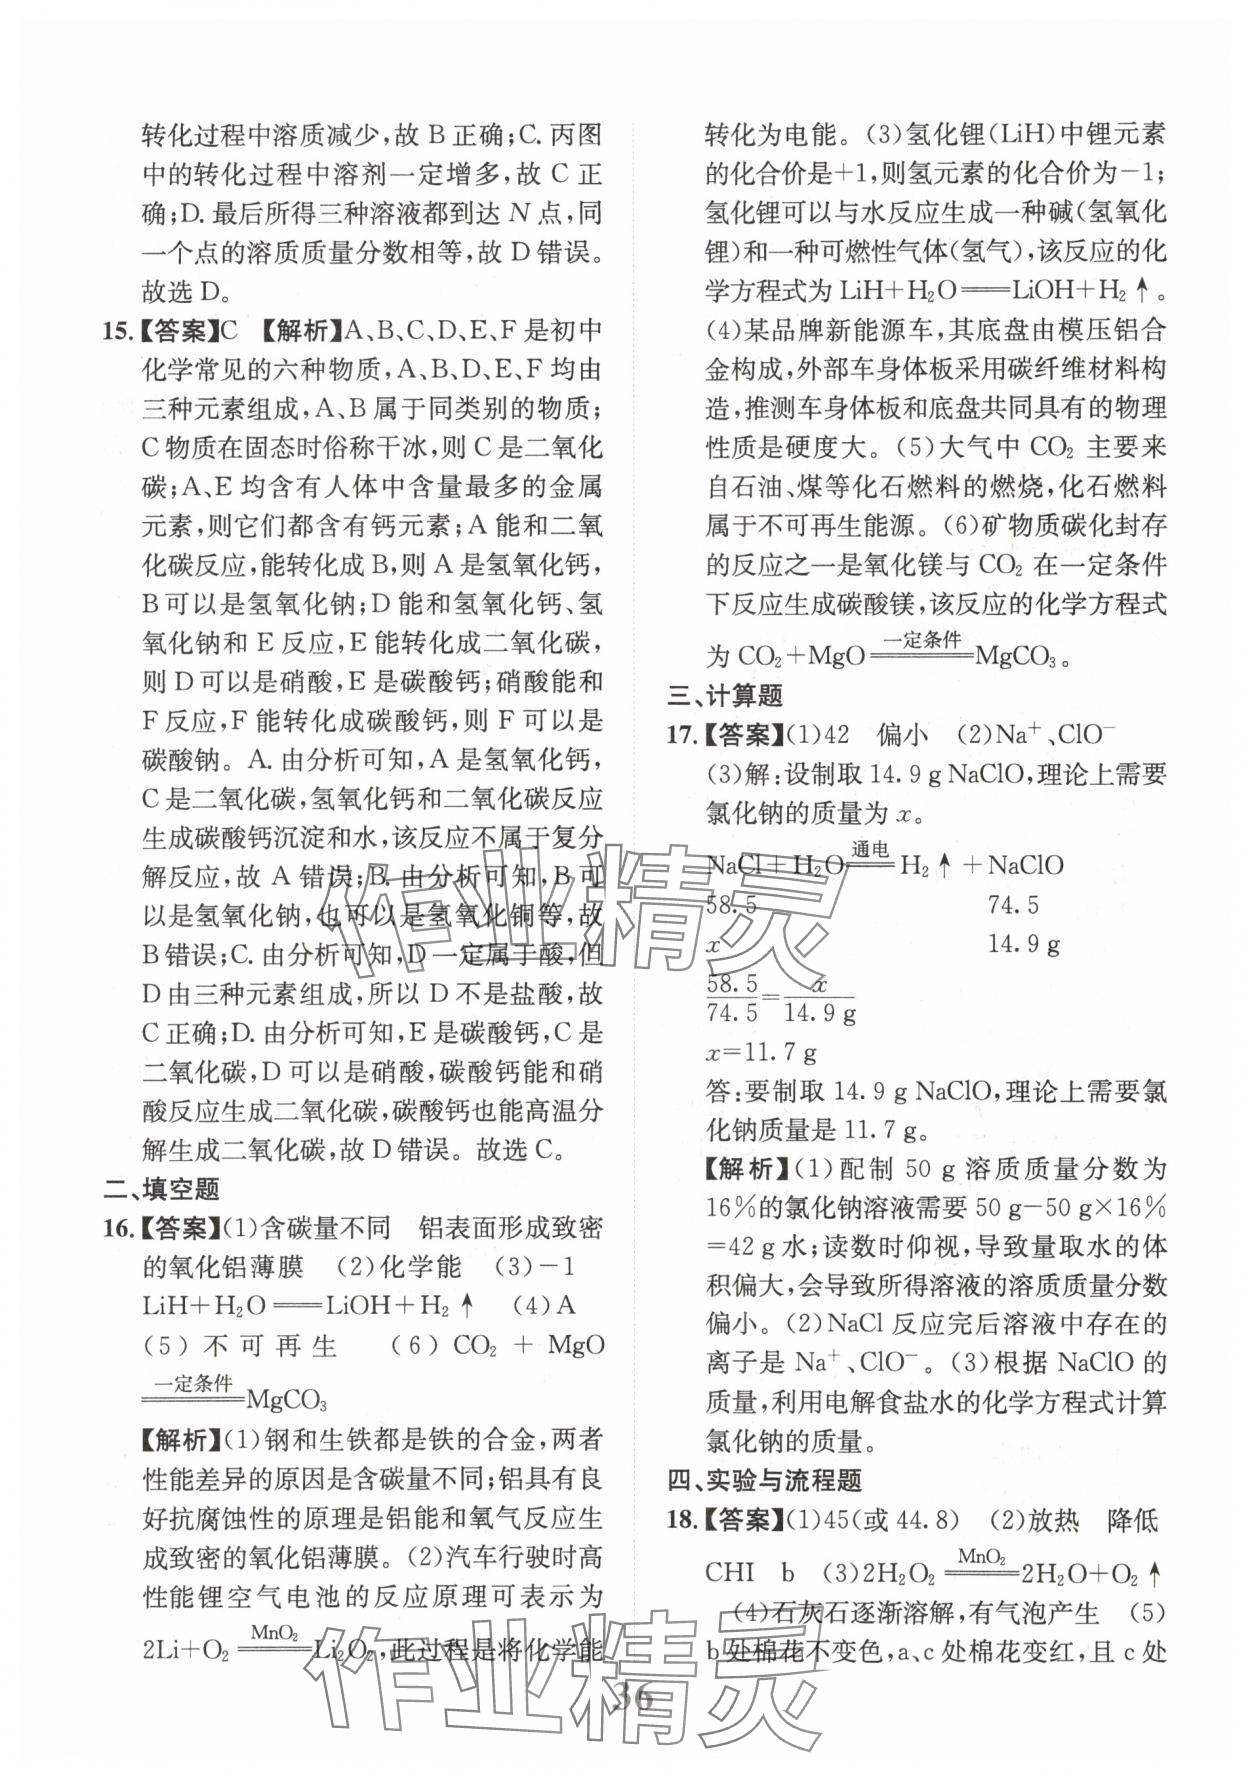 转化过程中溶质减少,故 B 正确;C. 丙图
中的转化过程中溶剂一定增多,故 C 正
确;D. 最后所得三种溶液都到达 N 点,同
一个点的溶质质量分数相等,故 D 错误。
故选 D。
15.【答案】C 【解析】A、B、C、D、E、F 是初中
化学常见的六种物质,A、B、D、E、F 均由
三种元素组成,A、B 属于同类别的物质;
C 物质在固态时俗称干冰,则 C 是二氧化
碳;A、E 均含有人体中含量最多的金属
元素,则它们都含有钙元素;A 能和二氧
化碳反应,能转化成 B,则 A 是氢氧化钙,
B 可以是氢氧化钠;D 能和氢氧化钙、氢
氧化钠和 E 反应,E 能转化成二氧化碳,
则 D 可以是硝酸,E 是碳酸钙;硝酸能和
F 反应,F 能转化成碳酸钙,则 F 可以是
碳酸钠。A. 由分析可知,A 是氢氧化钙,
C 是二氧化碳,氢氧化钙和二氧化碳反应
生成碳酸钙沉淀和水,该反应不属于复分
解反应,故 A 错误;B. 由分析可知,B 可
以是氢氧化钠,也可以是氢氧化铜等,故
B 错误;C. 由分析可知,D 一定属于酸,但
D 由三种元素组成,所以 D 不是盐酸,故
C 正确;D. 由分析可知,E 是碳酸钙,C 是
二氧化碳,D 可以是硝酸,碳酸钙能和硝
酸反应生成二氧化碳,碳酸钙也能高温分
解生成二氧化碳,故 D 错误。故选 C。
二、填空题
16.【答案】(1)含碳量不同 铝表面形成致密
的氧化铝薄膜 (2)化学能 (3)-1
LiH+H₂O══LiOH+H₂↑ (4)A
(5)不可再生 (6)CO₂ + MgO
一定条件══MgCO₃
【解析】(1)钢和生铁都是铁的合金,两者
性能差异的原因是含碳量不同;铝具有良
好抗腐蚀性的原理是铝能和氧气反应生
成致密的氧化铝薄膜。(2)汽车行驶时高
性能锂空气电池的反应原理可表示为
2Li+O₂ MnO₂══ Li₂O₂,此过程是将化学能
转化为电能。(3)氢化锂(LiH)中锂元素
的化合价是+1,则氢元素的化合价为-1;
氢化锂可以与水反应生成一种碱(氢氧化
锂)和一种可燃性气体(氢气),该反应的化
学方程式为 LiH+H₂O══LiOH+H₂↑。
(4)某品牌新能源车,其底盘由模压铝合
金构成,外部车身体板采用碳纤维材料构
造,推测车身体板和底盘共同具有的物理
性质是硬度大。(5)大气中 CO₂ 主要来
自石油、煤等化石燃料的燃烧,化石燃料
属于不可再生能源。(6)矿物质碳化封存
的反应之一是氧化镁与 CO₂ 在一定条件
下反应生成碳酸镁,该反应的化学方程式
为 CO₂+MgO 一定条件══ MgCO₃。
三、计算题
17.【答案】(1)42 偏小 (2)Na⁺、ClO⁻
(3)解:设制取 14.9 g NaClO,理论上需要
氯化钠的质量为 x。
NaCl+H₂O 通电══ H₂↑+NaClO
58.5 74.5
x 14.9 g
58.5/74.5 = x/14.9 g
x=11.7 g
答:要制取 14.9 g NaClO,理论上需要氯
化钠质量是 11.7 g。
【解析】(1)配制 50 g 溶质质量分数为
16%的氯化钠溶液需要 50 g-50 g×16%
=42 g 水;读数时仰视,导致量取水的体
积偏大,会导致所得溶液的溶质质量分数
偏小。(2)NaCl 反应完后溶液中存在的
离子是 Na⁺、ClO⁻。(3)根据 NaClO 的
质量,利用电解食盐水的化学方程式计算
氯化钠的质量。
四、实验与流程题
18.【答案】(1)45(或 44.8) (2)放热 降低
CHI b (3)2H₂O₂ MnO₂══ 2H₂O+O₂↑
(4)石灰石逐渐溶解,有气泡产生 (5)
b 处棉花不变色,a、c 处棉花变红,且 c 处
36
作业精灵
作业精灵